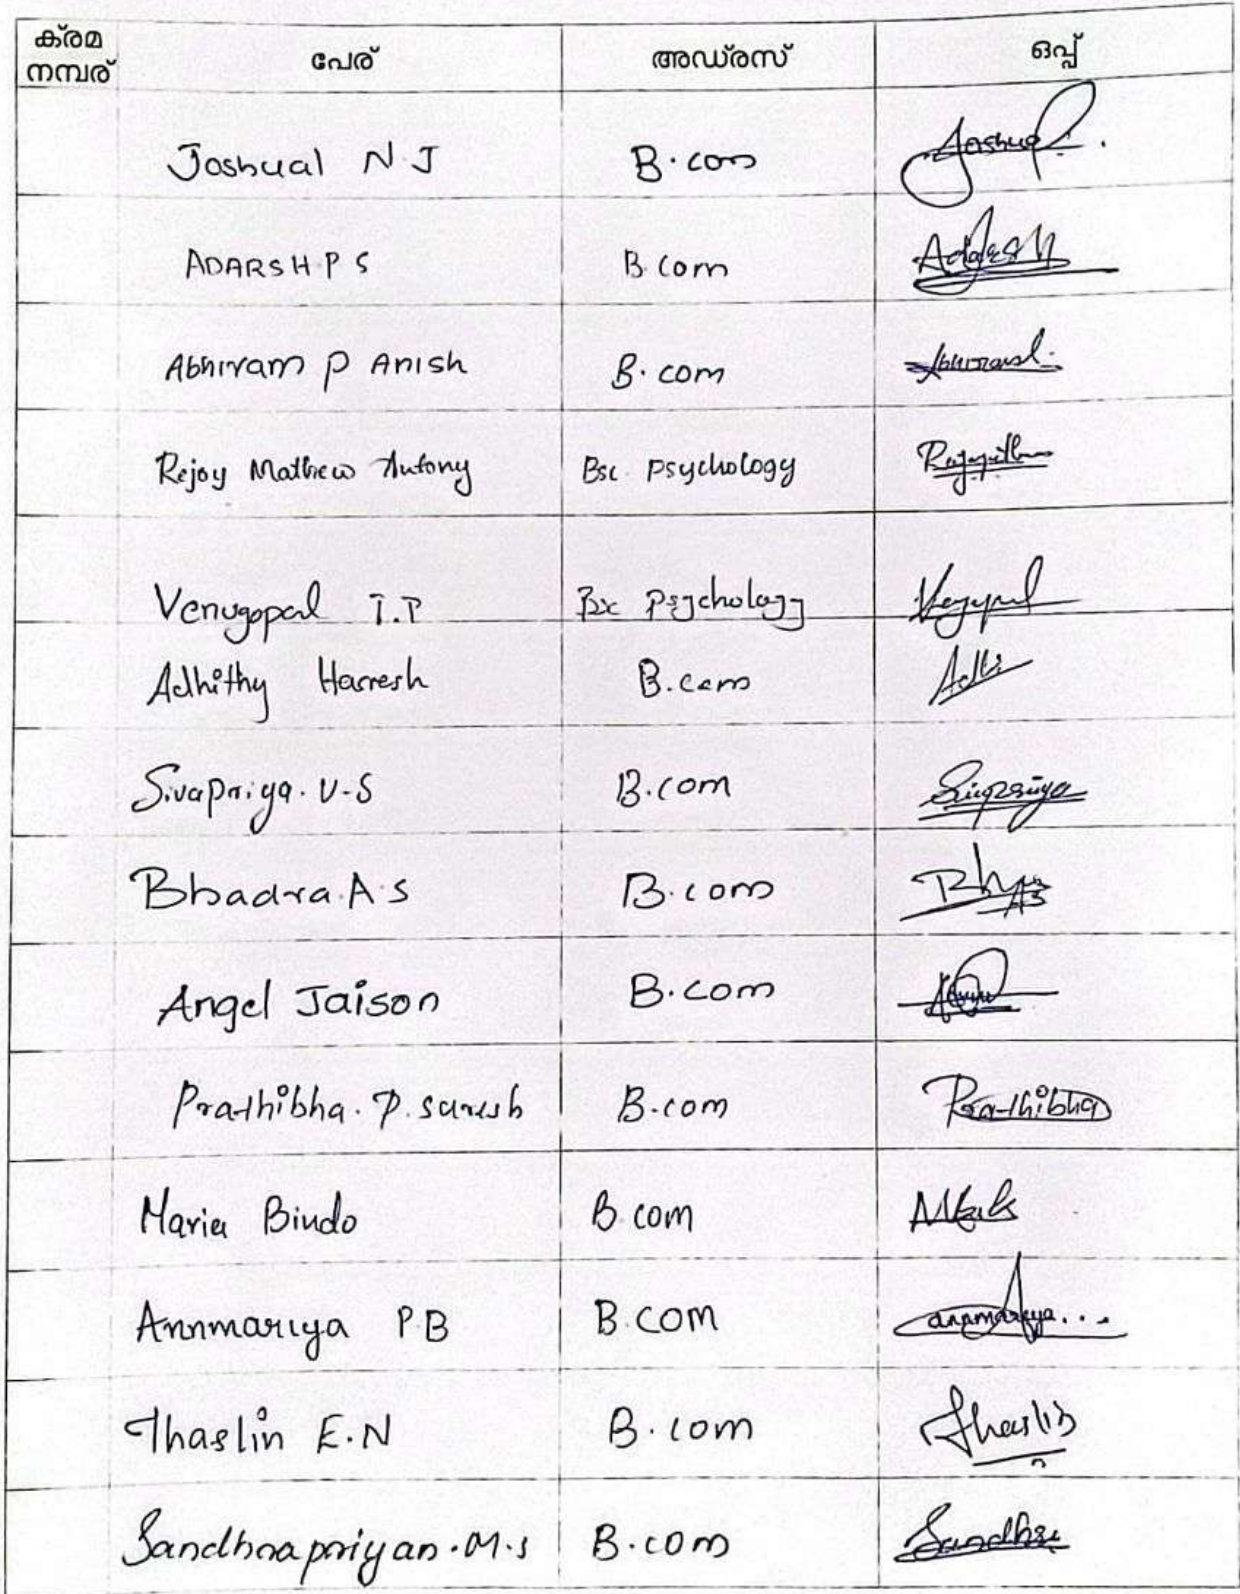 ക്രമ നമ്പര് പേര് അഡ്രസ് ഒപ്പ്
Joshual N J B.com Joshual
ADARSH P S B.com Adarsh
Abhiram P Anish B.com
Rejoy Mathew Antony Bsc. Psychology
Venugopal T.P Bsc Psychology
Adhithy Harresh B.com Adhi
Sivapriya. V-S B.com Sivapriya
Bhadra.A.S B.com
Angel Jaison B.com
Prathibha. P. Suresh B.com Prathibha
Maria Bindo B.com
Annmariya P.B B.COM annmariya...
Thaslin E.N B.com Thaslin
Sandhnapriyan.M.s B.com